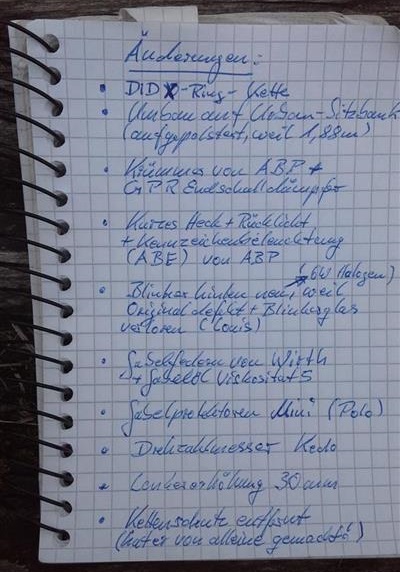 Änderungen:
• DID X-Ring-Kette
• Umbau auf Urban-Sitzbank
(aufgepolstert, weil 1,88m)
• Krümmer von ABP +
GPR Endschalldämpfer
• Kurzes Heck + Rücklicht
+ Kennzeichenbeleuchtung
(ABE) von ABP
(6W Halogen)
• Blinker hinten neu, weil
Original defekt + Blinkerglas
verloren (Louis)
• Gabelfedern von Wirth
+ Gabelöl Viskosität 5
• Gabelprotektoren Mini (Polo)
• Drehzahlmesser Kedo
• Lenkererhöhung 30mm
• Kettenschutz entfernt
(hat er von alleine gemacht!)